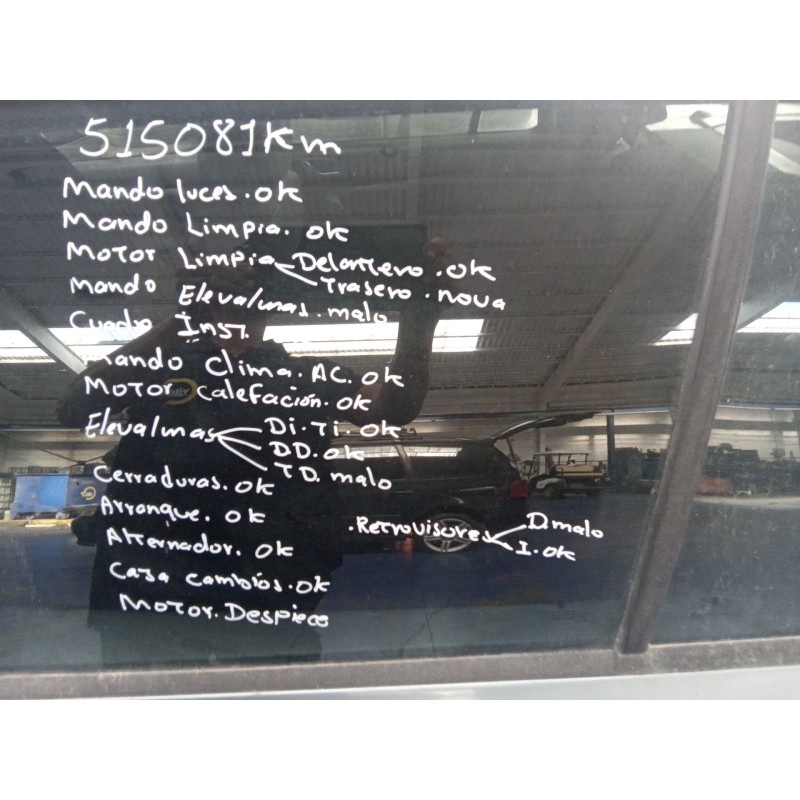 515081Km
Mando luces. ok
Mando Limpia. ok
Motor Limpia Delantero. ok
Trasero. nova
Mando Elevalunas. malo
Cuadro Inst.
Mando Clima. AC. ok
Motor Calefación. ok
Elevalunas Di. Ti. ok
DD. ok
TD. malo
Cerraduras. ok
Arranque. ok
Alternador. ok
Caja cambios. ok
Motor. Despiece
.Retrovisores D. malo
I. ok